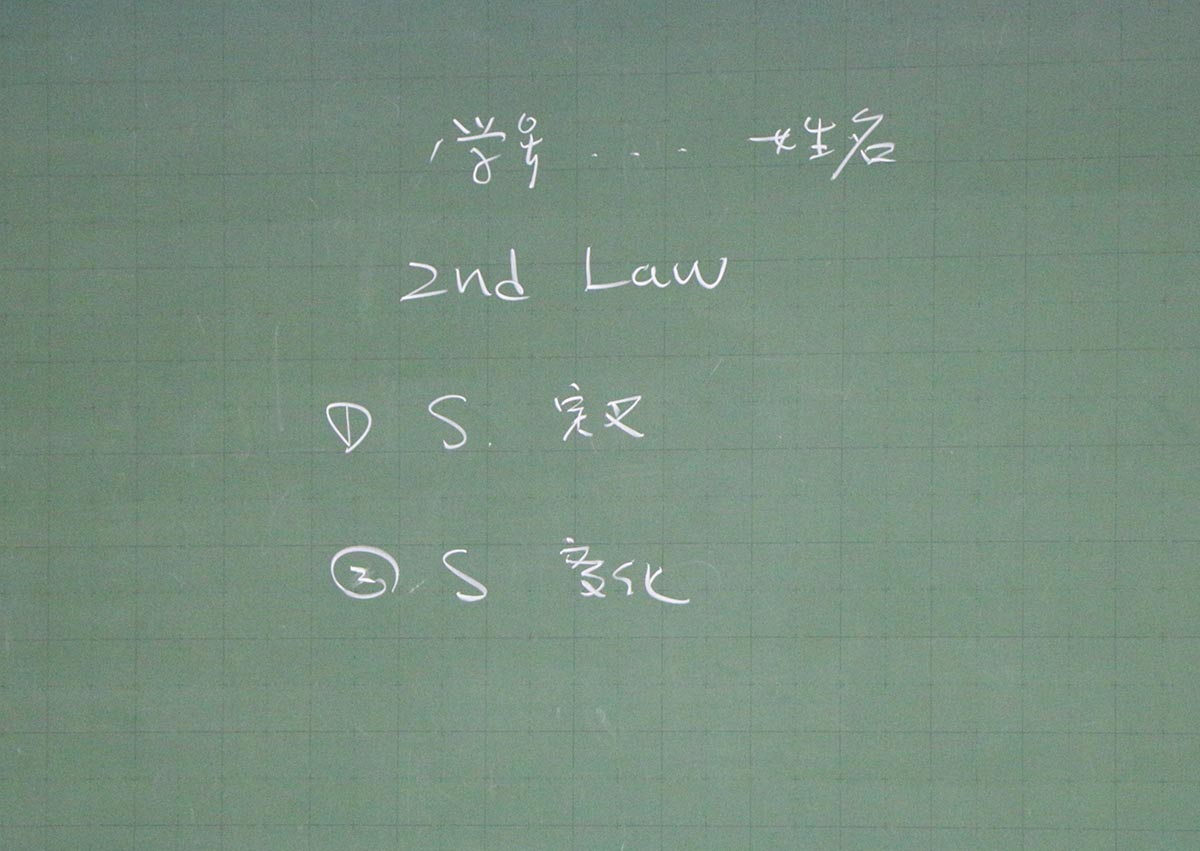 学号 .... 姓名
2nd Law
① S. 定义
② S 变化